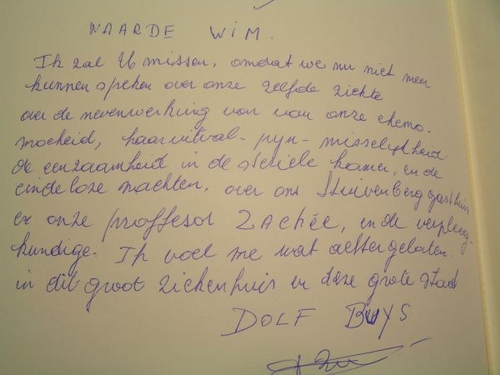 WAARDE WIM.
Ik zal U missen, omdat we nu niet meer
kunnen spreken over onze zelfde ziekte
over de nevenwerking van van onze chemo.
moeheid, haaruitval - pyn - misselijkheid
de eenzaamheid in de steriele kamer, en de
eindeloze nachten, over ons Stuivenberg gasthuis
en onze proffesor ZACHÉE, en de verpleeg
kundige. Ik voel me wat achtergelaten.
in dit groot ziekenhuis en deze grote stad
DOLF BUYS